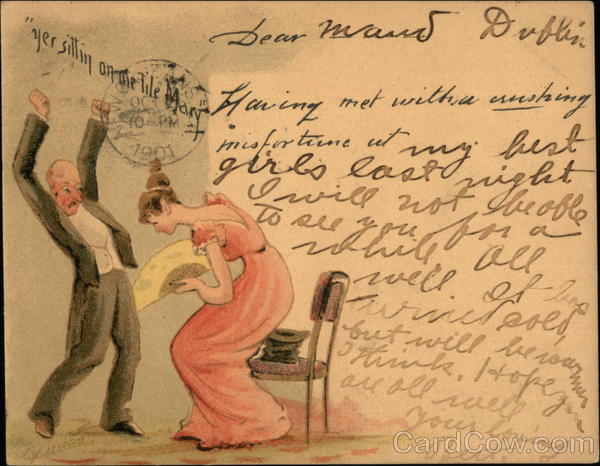 "yer sittin on me tile Mary"
OCT
10-PM
1901
Dear Maud Dublin
Having met with a crushing
misfortune at my best
girls last night
I will not be able
to see you for a
while. All
well. It has
turned cold,
but will be warmer
I think. Hope you
are all well.
CardCow.com